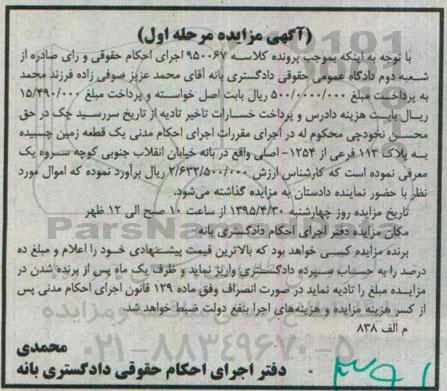 (آگهی مزایده مرحله اول)
با توجه به اینکه بموجب پرونده کلاسه ۹۵۰۰۶۷ اجرای احکام حقوقی و رای صادره از
شعبه دوم دادگاه عمومی حقوقی دادگستری بانه آقای محمد عزیز صوفی زاده فرزند محمد
به پرداخت مبلغ ۵۰۰/۰۰۰/۰۰۰ ریال بابت اصل خواسته و پرداخت مبلغ ۱۵/۴۹۰/۰۰۰
ریال بابت هزینه دادرس و پرداخت خسارات تاخیر تادیه از تاریخ سررسید چک در حق
محسن نخودچی محکوم له در اجرای مقررات اجرای احکام مدنی یک قطعه زمین چسبیده
به پلاک ۱۱۳ فرعی از ۱۲۵۴- اصلی واقع در بانه خیابان انقلاب جنوبی کوچه سروه یک
معرفی نموده است که کارشناس ارزش ۲/۶۳۲/۵۰۰/۰۰۰ ریال برآورد نموده که اموال مورد
نظر با حضور نماینده دادستان به مزایده گذاشته می‌شود.
تاریخ مزایده روز چهارشنبه ۱۳۹۵/۴/۳۰ از ساعت ۱۰ صبح الی ۱۲ ظهر
مکان مزایده دفتر اجرای احکام دادگستری بانه
برنده مزایده کسی خواهد بود که بالاترین قیمت پیشنهادی خود را اعلام و مبلغ ده
درصد را به حساب سپرده دادگستری واریز نماید و ظرف یک ماه پس از برنده شدن در
مزایده مبلغ را تادیه نماید در صورت انصراف وفق ماده ۱۲۹ قانون اجرای احکام مدنی پس
از کسر هزینه مزایده و هزینه‌های اجرا بنفع دولت ضبط خواهد شد
م الف ۸۳۸
محمدی
دفتر اجرای احکام حقوقی دادگستری بانه
۰۲۱-۸۸۳۴۹۶۷۰-۵